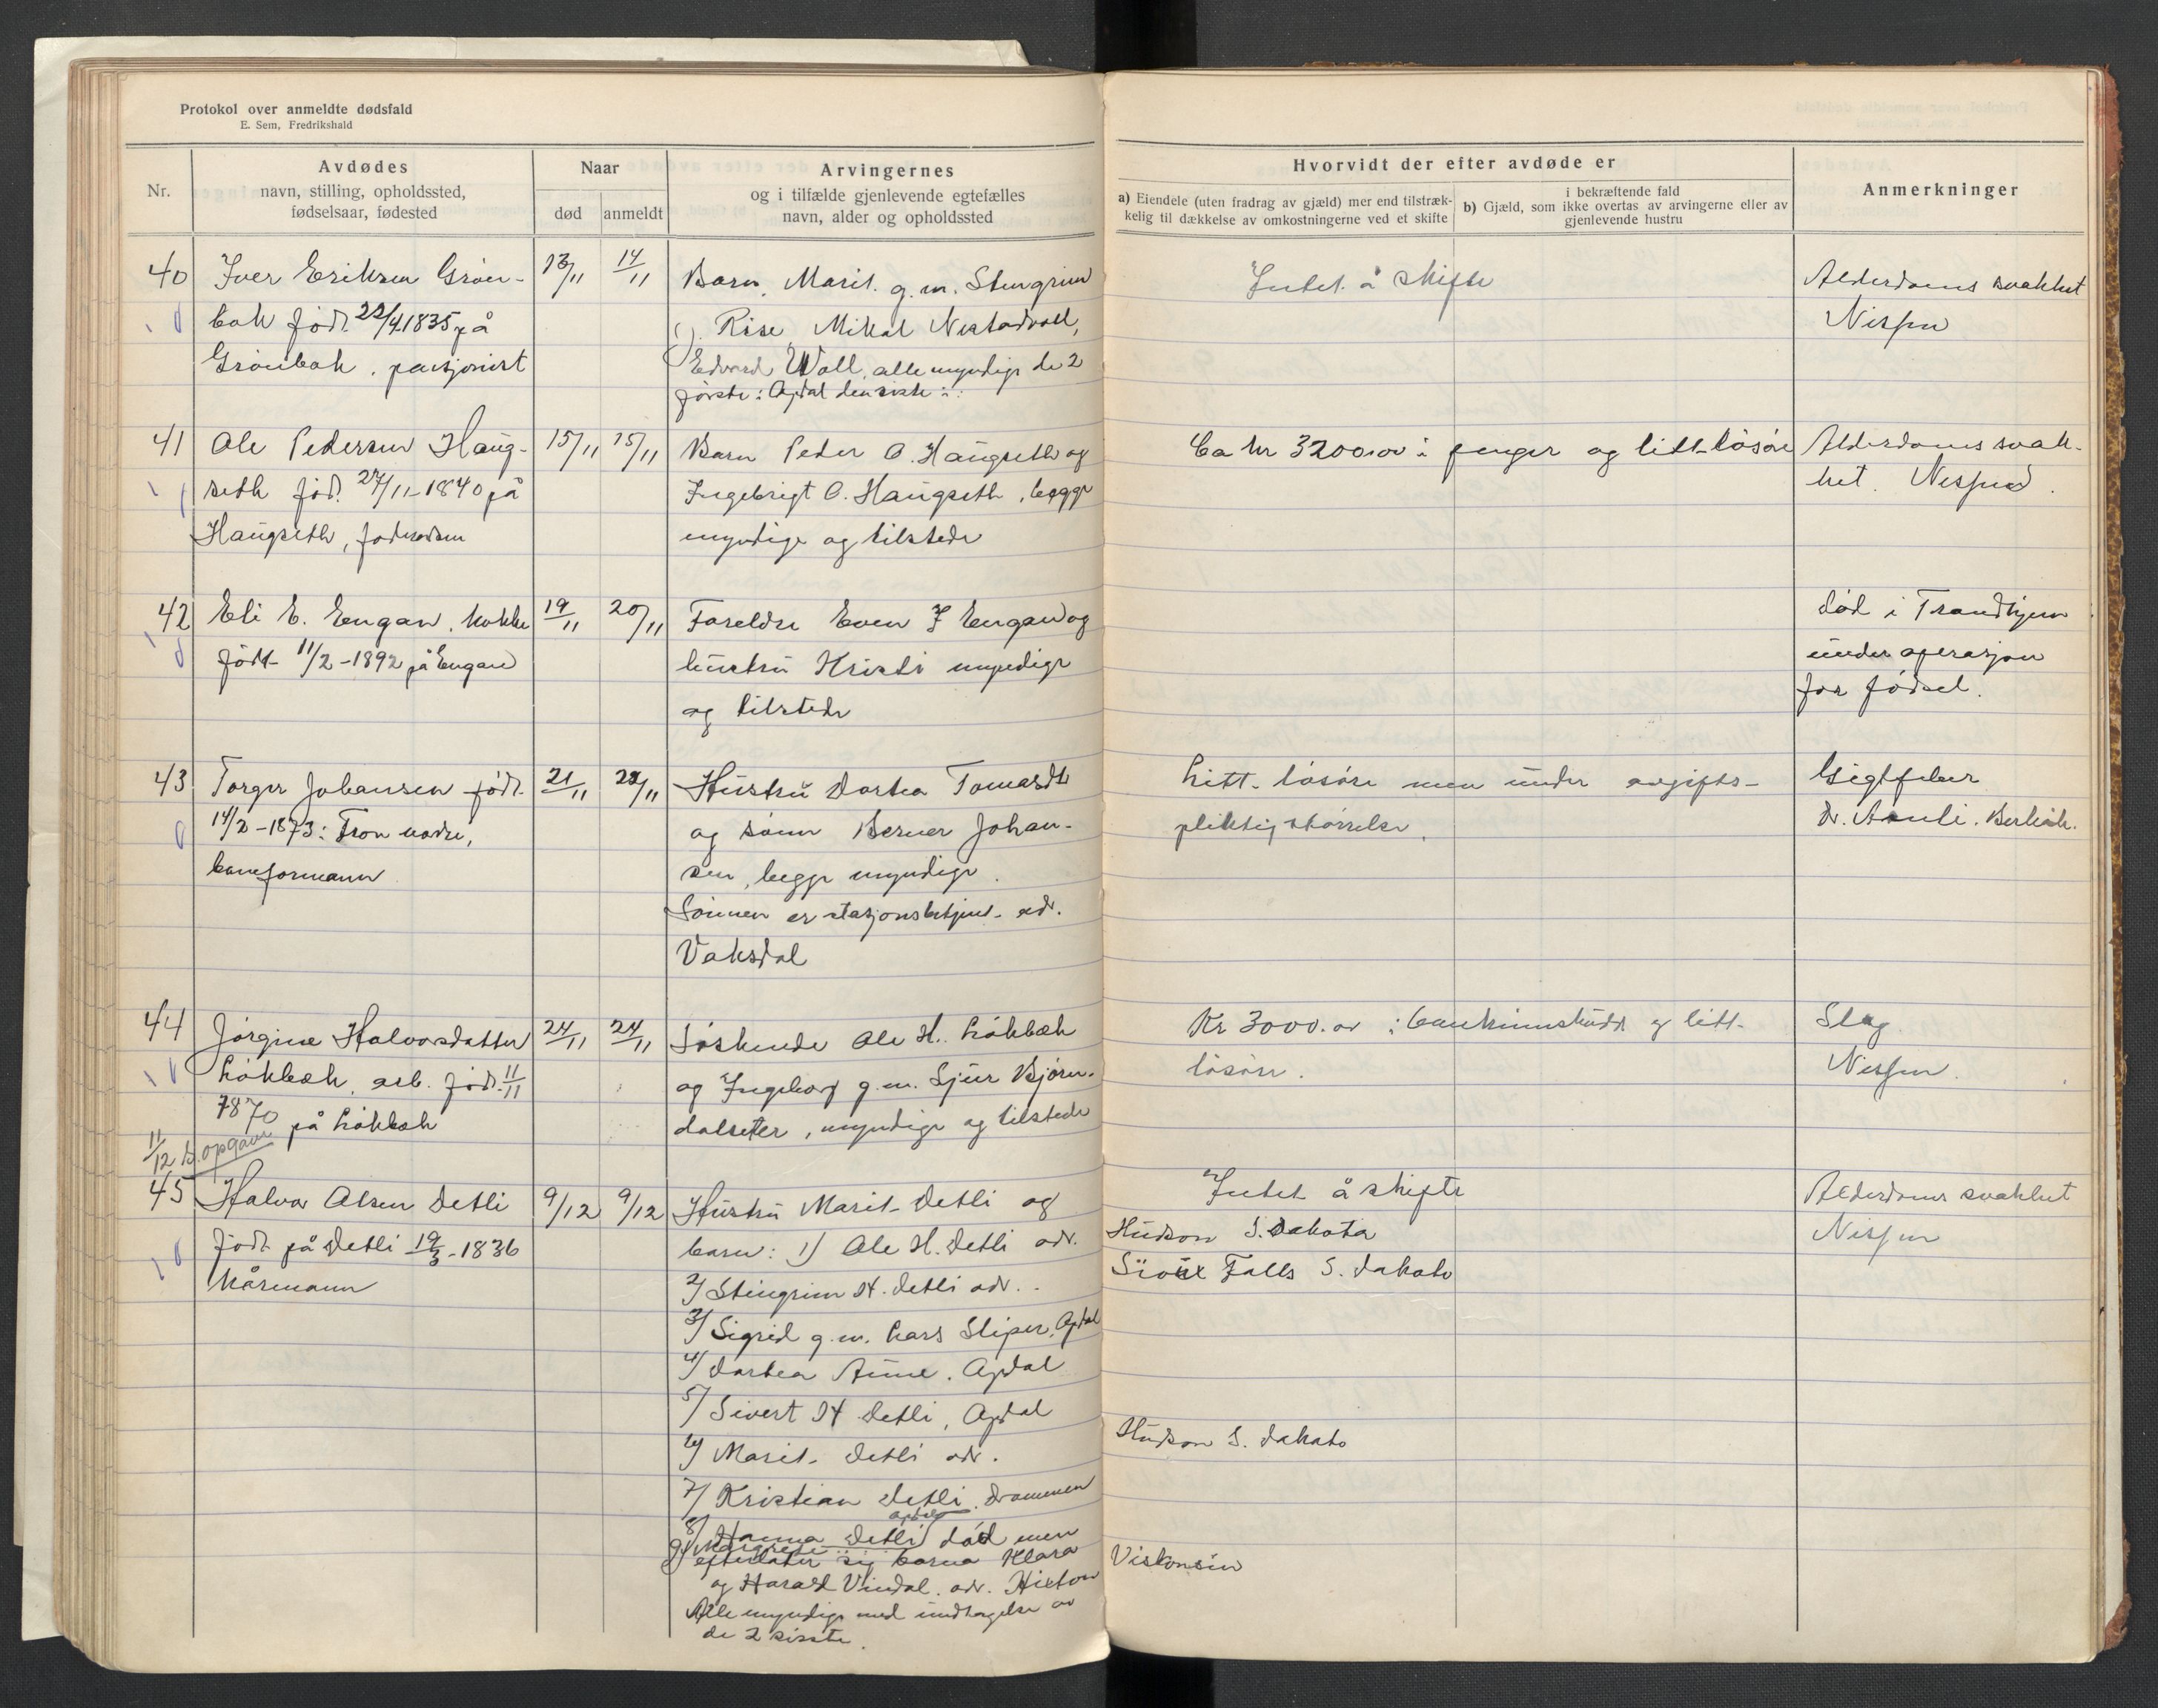 Protokol over anmeldte dødsfald
E. Sem, Fredrikshald
Nr.
Avdødes
navn, stilling, opholdssted,
fødselsaar, fødested
Naar
død
anmeldt
Arvingernes
og i tilfælde gjenlevende egtefælles
navn, alder og opholdssted
Hvorvidt der efter avdøde er
a) Eiendele (uten fradrag av gjæld) mer end tilstræk-
kelig til dækkelse av omkostningerne ved et skifte
i bekræftende fald
b) Gjæld, som ikke overtas av arvingerne eller av
gjenlevende hustru
Anmerkninger
40 Iver Eriksen Grøn-
bak født 22/4 1835 på
Grønbak, pensjonist
13/11 14/11
Barn, Marit g.m. Stengrim
Rise, Mikal Nestadvoll,
Edvard Woll, alle myndige de 2
første i Opdal den siste i
Intet å skifte
Alderdoms svakhet
Nissen
41 Ole Pedersen Haug-
seth fød. 27/11-1840 på
Haugseth, føderådsm
15/11 15/11
Barn Peder O. Haugseth og
Ingebrigt O. Haugseth, begge
myndige og tilstede
Ca kr 3200.00 i penger og litt løsøre
Alderdoms svak-
het. Nissen.
42 Eli E. Engan, kokke
født 11/2-1892 på Engan
19/11 20/11
Foreldre Even J Engan og
hustru Kristi myndige
og tilstede
død i Trondhjem
under operasjon
for fødsel.
43 Torger Johansen født
14/2-1873 i Tron nordre,
baneformann
21/11 22/11
Hustru Dortea Tomasdtr
og sønn Berner Johan-
sen, begge myndige.
Sønnen er stasjonsbetjent adr.
Vaksdal
Litt løsøre men under avgifts-
pliktig størrelse.
Gigtfeber
Dr. Berkåk.
44 Jørgine Halvorsdatter
Løkbæk, arb. fød. 11/11
1870 på Løkbæk
11/12 D. opgave
24/11 24/11
Søskende Ole H. Løkbæk
og Ingeborg g.m. Sjur Bjørn-
dalseter, myndige og tilstede
Kr 3000.00 i bankinnskudd og litt
løsøre.
Slag
Nissen.
45 Halvor Olsen Detli
født på Detli 19/3-1836
Kårmann
9/12 9/12
Hustru Marit Detli og
barn: 1) Ole H. Detli adr.
Hudson S. Dakota
2) Steingrim H. Detli adr.
Sioux Falls S. Dakota
3) Sigrid g.m. Lars Sliper, Opdal
4) Dortea Aune. Opdal
5) Sivert H Detli, Opdal
6) Marit Detli adr.
Hudson S. Dakota
7) Kristian Detli. Drammen
8) Hanna Detli Opdal
9) Margrete død men
efterlater sig barna Klara
og Harald Vindal. adr. Hixton
Viskonsin
Alle myndige med undtagelse av
de 2 siste.
Intet å skifte
Alderdoms svakhet
Nissen